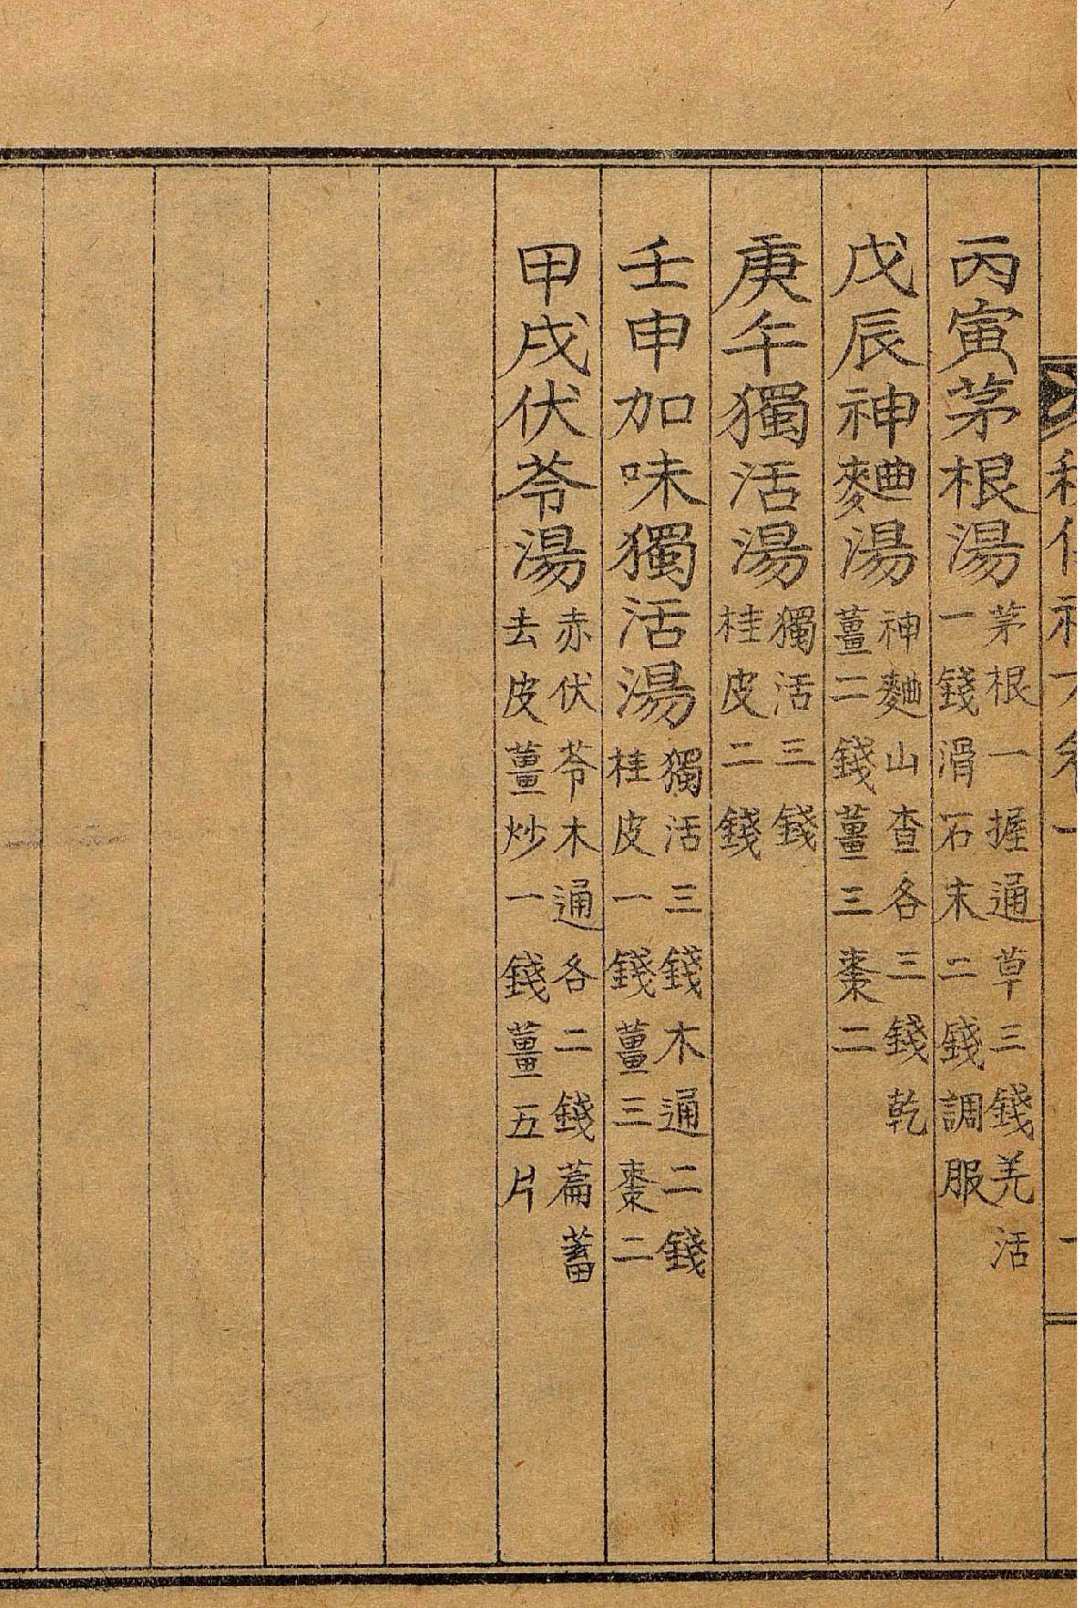 丙寅茅根湯
茅根一握通草三錢羌活
一錢滑石末二錢調服
戊辰神麯湯
神麯山查各三錢乾
薑二錢薑三棗二
庚午獨活湯
獨活三錢
桂皮二錢
壬申加味獨活湯
獨活三錢木通二錢
桂皮一錢薑三棗二
甲戌伏苓湯
赤伏苓木通各二錢萹蓄
去皮薑炒一錢薑五片